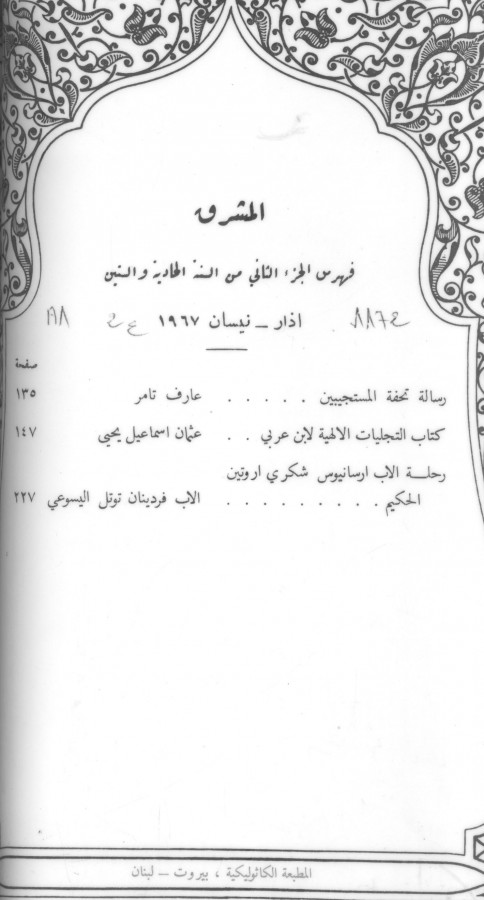 المشرق
فهرس الجزء الثاني من السنة الحادية والستين
اذار – نيسان ١٩٦٧
صفحة
رسالة تحفة المستجيبين . . . . . عارف تامر ١٣٥
كتاب التجليات الالهية لابن عربي . . عثمان اسماعيل يحيى ١٤٧
رحلة الاب ارسانيوس شكري اروتين
الحكيم . . . . . . . . . الاب فردينان توتل اليسوعي ٢٢٧
المطبعة الكاثوليكية ، بيروت – لبنان